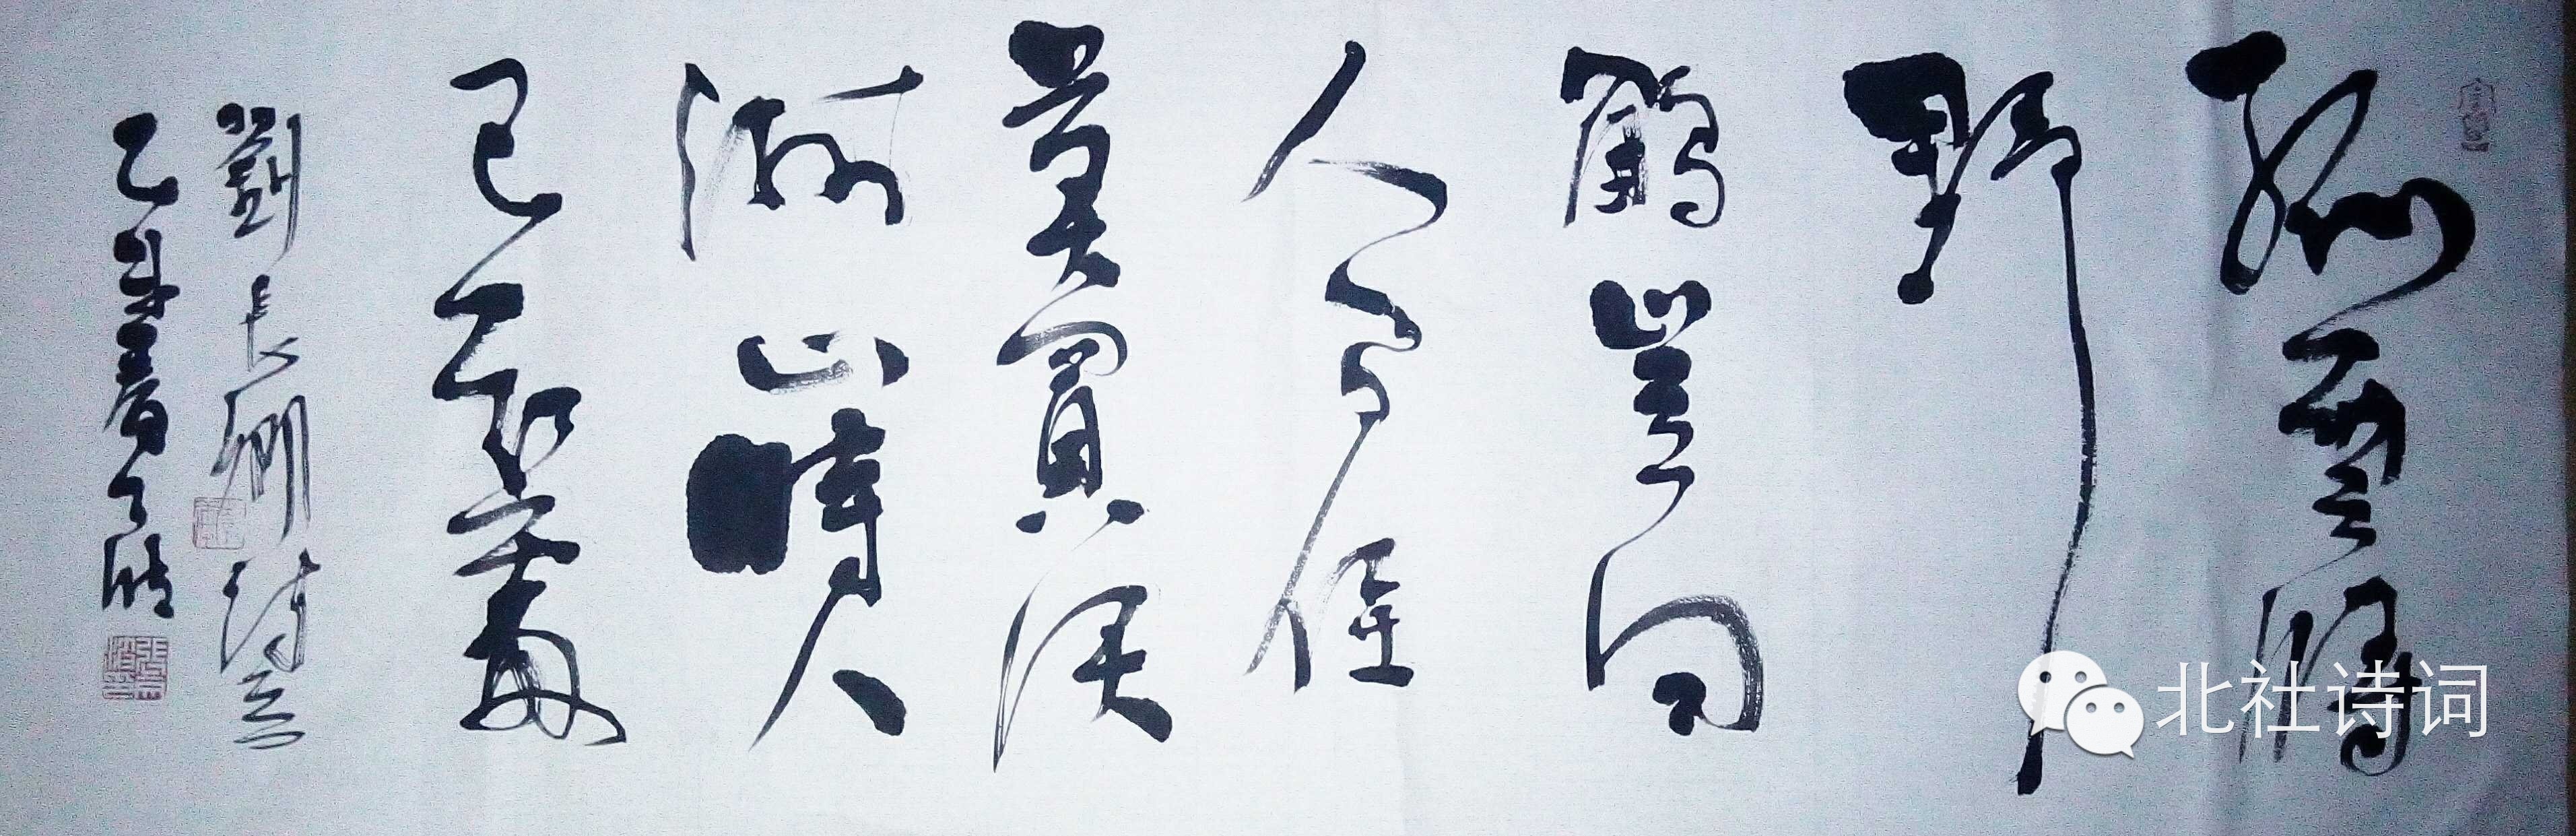 孤雲將
野
鶴豈向
人間住
莫買沃
洲山時人
已知處
劉長卿詩意
乙未
北社诗词